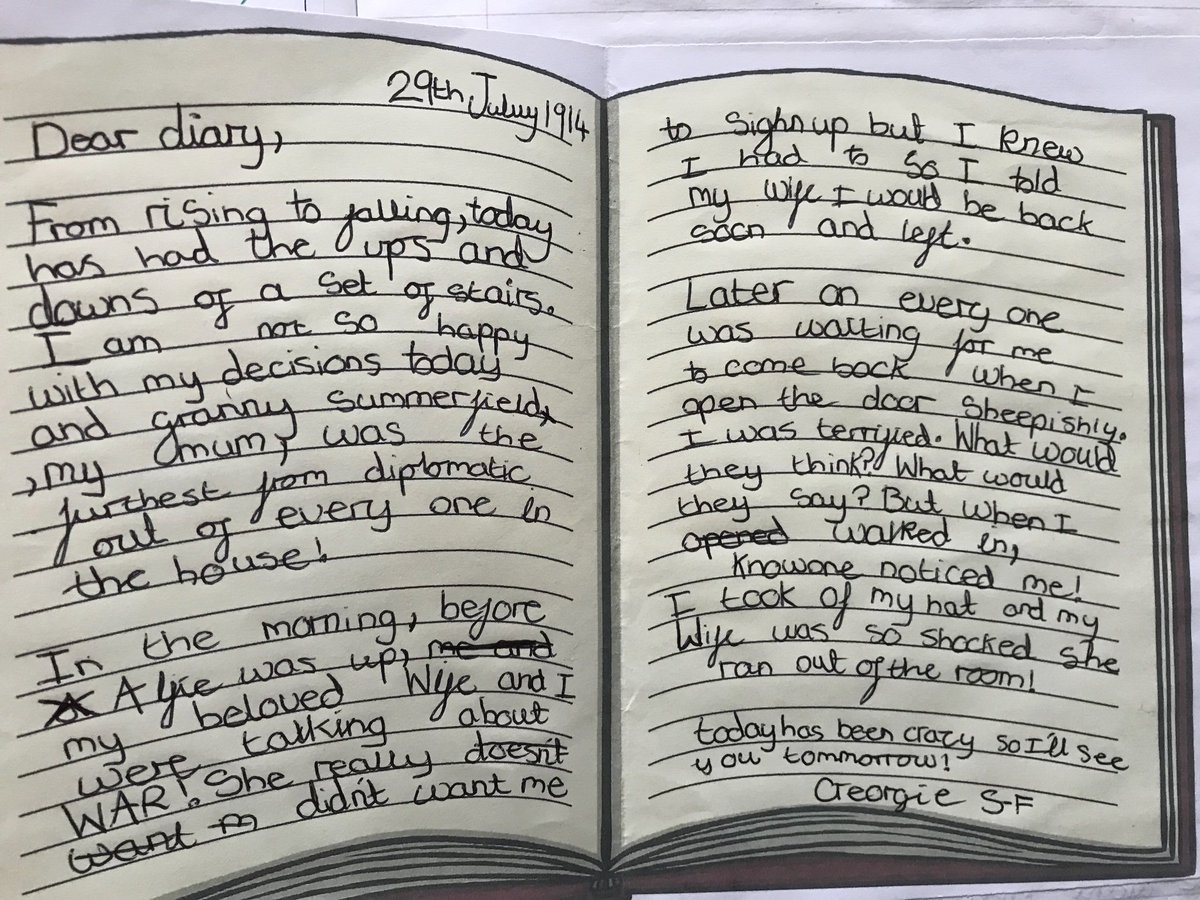 29th Juluy 1914
Dear diary,
From rising to falling, today
has had the ups and
downs of a set of stairs.
I am not so happy
with my decisions today
and granny summerfield,
, my mum, was the
furthest from diplomatic
out of every one in
the house!
In the morning, before
A Alfie was up, me and
my beloved Wife and I
were talking about
WAR! She really doesn't
want m didn't want me
to sighn up but I knew
I had to so I told
my wife I would be back
soon and left.
Later on every one
was waiting for me
to come back when I
open the door sheepishly.
I was terrified. What would
they think? What would
they say? But when I
opened walked in,
knowone noticed me!
I took of my hat and my
Wife was so shocked she
ran out of the room!
today has been crazy so I'll see
you tommorrow!
Georgie S-F